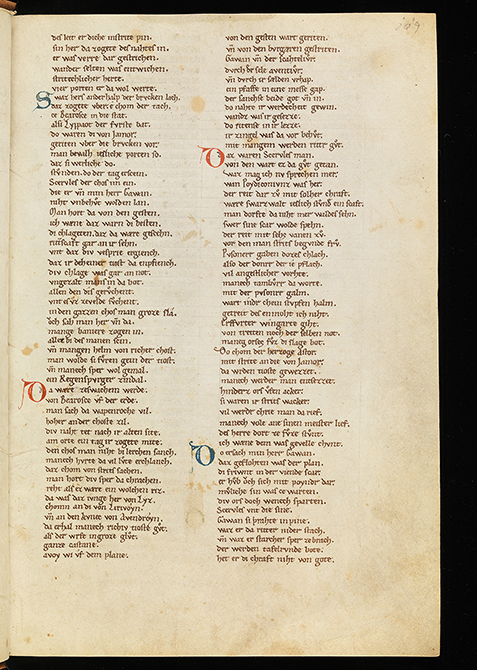 des leit er diche instrite pin.
sin her da zogete des nahtes in.
er was worden dar gestrichen.
wunder selten was entwichen.
stritechlicher herte.
vier porte er da wol werte.
Swaz hers anderhalp der brycken lach.
daz zogete vbere e chom der tach.
ze Bearosce in die stat.
alsi Lyppaot der fvrste bat.
do waren di von Jamor.
geriten vber die brycken vor.
man bevalh iesliche porten so.
daz si werliche do.
stvnden. do der tag erscein.
Scervles der chos im ein.
die er vn min herr Gawan.
niht vnbehvt wolden lan.
Man hort da von den gesten.
ich wene daz warn di besten.
di chlageten. daz da ware gescehn.
ritscaft gar an ir sehn.
vnt daz div vesperie ergiench.
daz ir deheiner tiost da enpfiench.
div chlage was gar an not.
vngezalt mans in da bot.
allen den dis gervchent.
vnt ez vz ze velde svchent.
in den gazzen chos man groze sla.
och sah man her vn da.
mange baniere zogen in.
alles bi des manen scin.
vn mangen helm von richer chost.
man wolde si fvren gein der tiost.
vn manech sper wol gemal.
ein Regenspurger zindal.
Da ware zeswachem werde.
von Bearosce vf der erde.
man sach da wapenroche vil.
hoher an der choste zil.
div naht tet nach ir alten site.
am orte ein tag ir zogete mite.
den chos man niht bi lerchen sanch.
manech hvrte da vil lvte erchlanch.
daz chom von strites sachen.
man hort div sper da chrachen.
reht als ez ware ein wolchen riz.
da was daz ivnge her von Lyz.
chomn an di von Lirivoyn.
vn an den kvnic von Avendroyn.
da erhal manech richiv tiost gvt.
als der wrfe in groze glvt.
ganze castane.
avoy wi vf dem plane.
von den gesten wart geriten.
vn von den bvrgaren gestriten.
Gawan vn der scahtelivr.
dvrch der sele aventivr.
vn dvrch ir selden vrhap.
ein pfaffe in eine messe gap.
der sanch si beide got vn in.
do nahet ir werdecheit gewin.
wand ez was ir geseze.
do riten si in ir leze.
ir zingel was da vor behvt.
mit mangem werden riter gvt.
Daz waren Scervles man.
von den wart ez da gvt getan.
waz mag ich nv sprechen mer.
wan Poydiconivnz was her.
der reit dar zv mit solher chraft.
ware swarzwalt ieslich stvnd ein scaft.
man dorft da niht mer waldes sehn.
swer sine scar wolde spehn.
der reit mit sehs vanen zv.
vor den man strits begvnde frv.
Pvsoner gaben dozes chlach.
alsо der doner der ie pflach.
vil angestlicher vorhte.
manech tambvrr da worte.
mit der pvsoner galm.
wart inder chein stvpfen halm.
getretet des enmoht ich niht.
Erffvrter wingarte giht.
von treten noch der selben not.
manec orses fvz di slage bot.
Do chom der herzoge Astor.
mit strite an die von Jamor.
da wrden tioste gewezzet.
manech werder man entsezzet.
hinderz ors vfen acker.
si waren ir strits wacker.
vil werde chrie man da rief.
manech vole ane sinen meister lief.
des herre dort ze fvze stvnt.
ich wene dem was gevelle chvnt.
Do ersach min herr Gawan.
daz geflohten was der plan.
di frivnt in der viende scar.
er hvb och sich mit poynder dar.
mvliche sin was ze warten.
div ors doch wenech sparten.
Scervles vnt die sine.
Gawan si prahte in pine.
waz er da riter nider stach.
vn waz er starcher sper zebrach.
der werden tafelrvnde bote.
het er di chraft niht von gote.